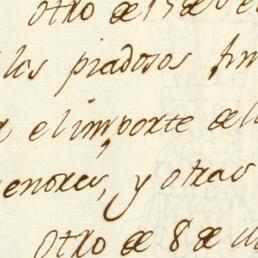 otro de 15 de
los piadosos fin
el importe de
enores, y otras
otro de 8 de